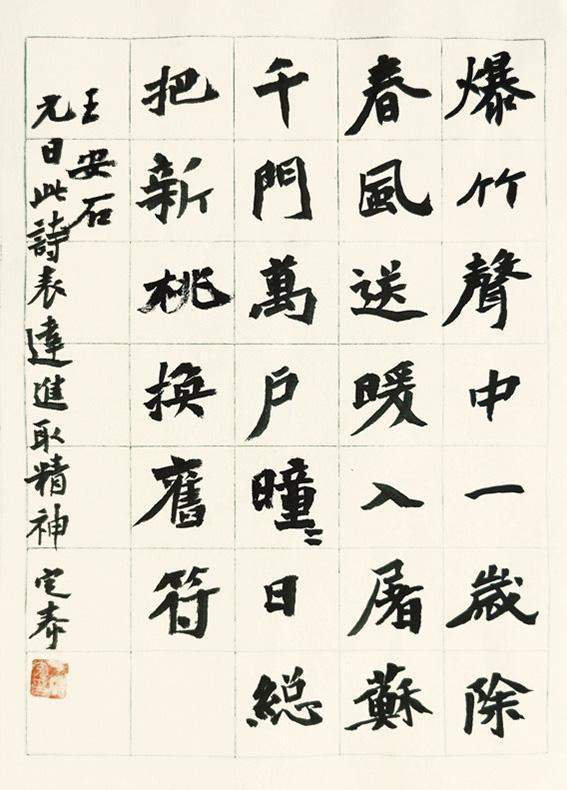 爆竹聲中一歲除
春風送暖入屠蘇
千門萬户曈〻日總
把新桃換舊符
王安石
元日此詩表達進取精神 定泰